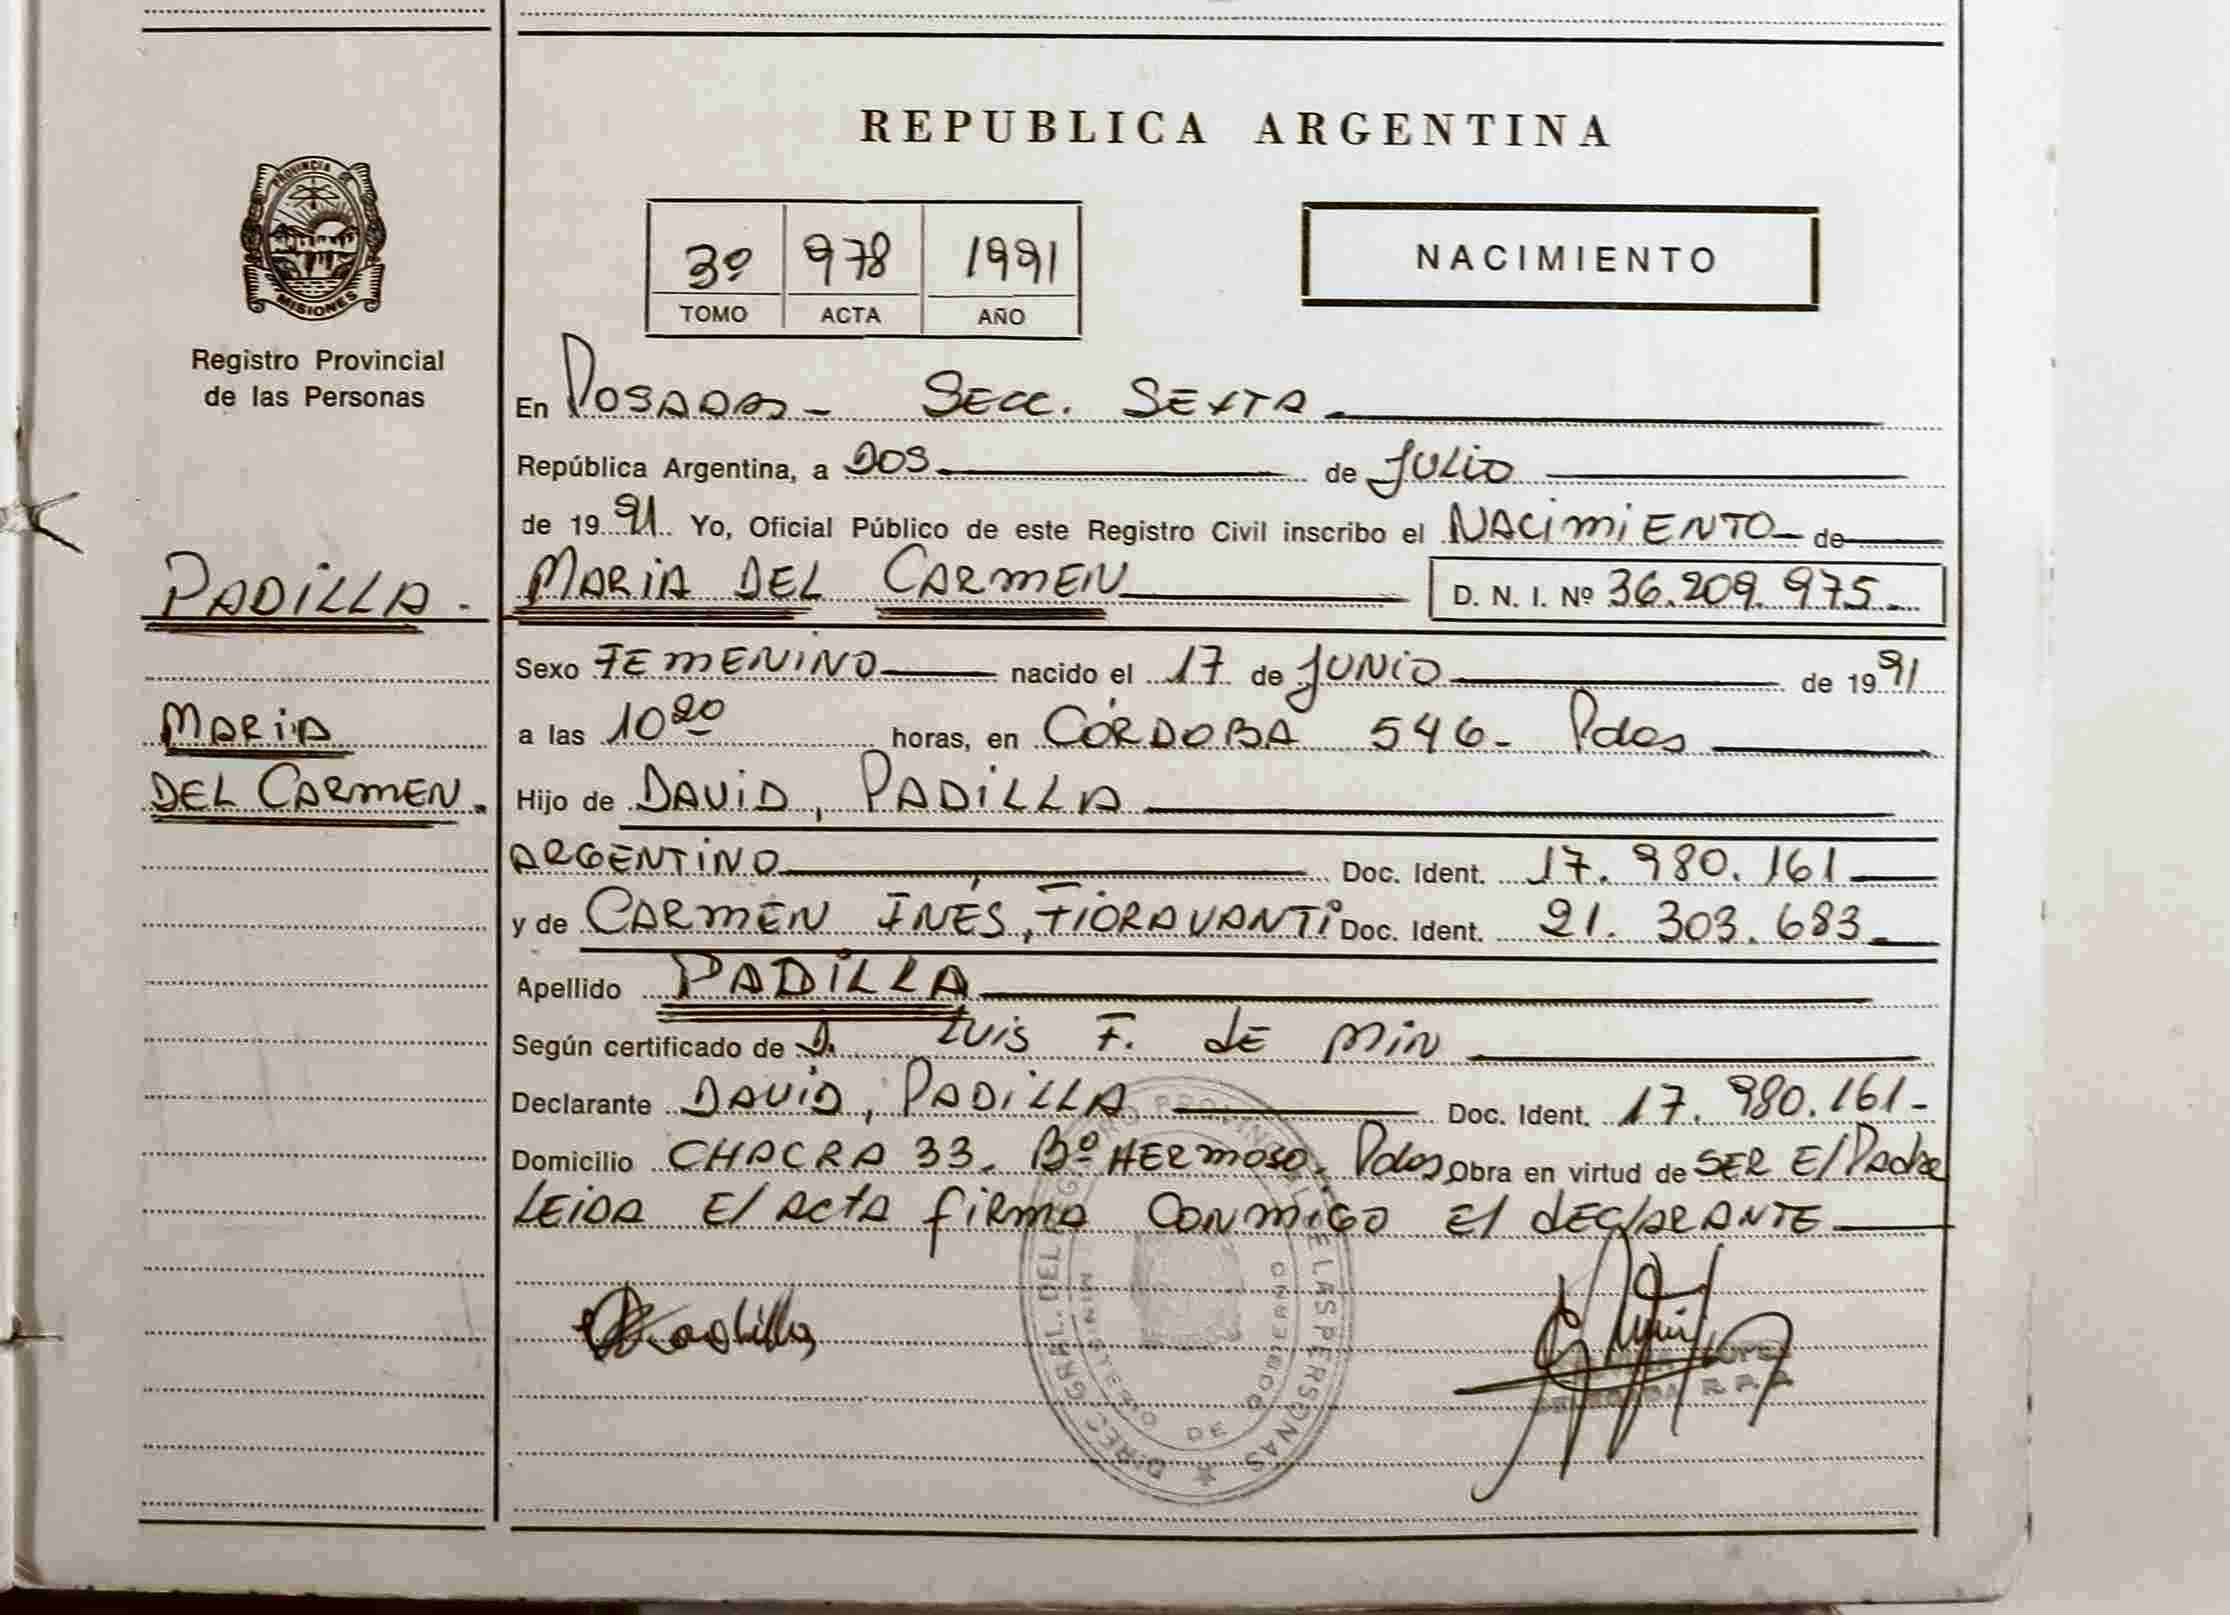 PROVINCIA DE
MISIONES
Registro Provincial
de las Personas
PADILLA.
MARIA
DEL CARMEN.
REPUBLICA ARGENTINA
3º 978 1991
TOMO ACTA AÑO
NACIMIENTO
En POSADAS - SECC. SEXTA
República Argentina, a DOS de JULIO
de 1991 Yo, Oficial Público de este Registro Civil inscribo el NACIMIENTO de
MARIA DEL CARMEN D. N. I. Nº 36.209.975
Sexo FEMENINO nacido el 17 de JUNIO de 1991
a las 10 20 horas, en CÓRDOBA 546 - Pdas
Hijo de DAVID, PADILLA
ARGENTINO Doc. Ident. 17.980.161
y de CARMEN INÉS, FIORAVANTI Doc. Ident. 21.303.683
Apellido PADILLA
Según certificado de D. Luis F. de Min
Declarante DAVID, PADILLA Doc. Ident. 17.980.161-
Domicilio CHACRA 33. Bº HERMOSO. Pdas Obra en virtud de SER El Padre
LEIDA El ACTA firma CONMIGO El dEClARANTE
Padilla
MINISTERIO DE GOBIERNO